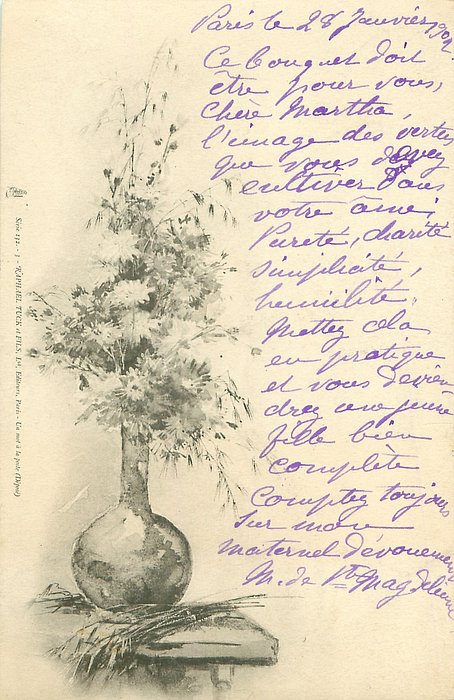 Paris le 28 Janvier 1902.
Ce bouquet doit
être pour vous,
chère Martha,
l'image des vertus
que vous devez
cultiver dans
votre âme;
Pureté, charité
simplicité,
humilité.
Mettez cela
en pratique
et vous devien
drez une jeune
fille bien
complète
Comptez toujours
sur mon
maternel dévouement
M. de Ste Magdeleine
Série 132. - 3 - RAPHAEL TUCK et FILS, Ltd, Editeurs, Paris - Un mot à la poste (Déposé)